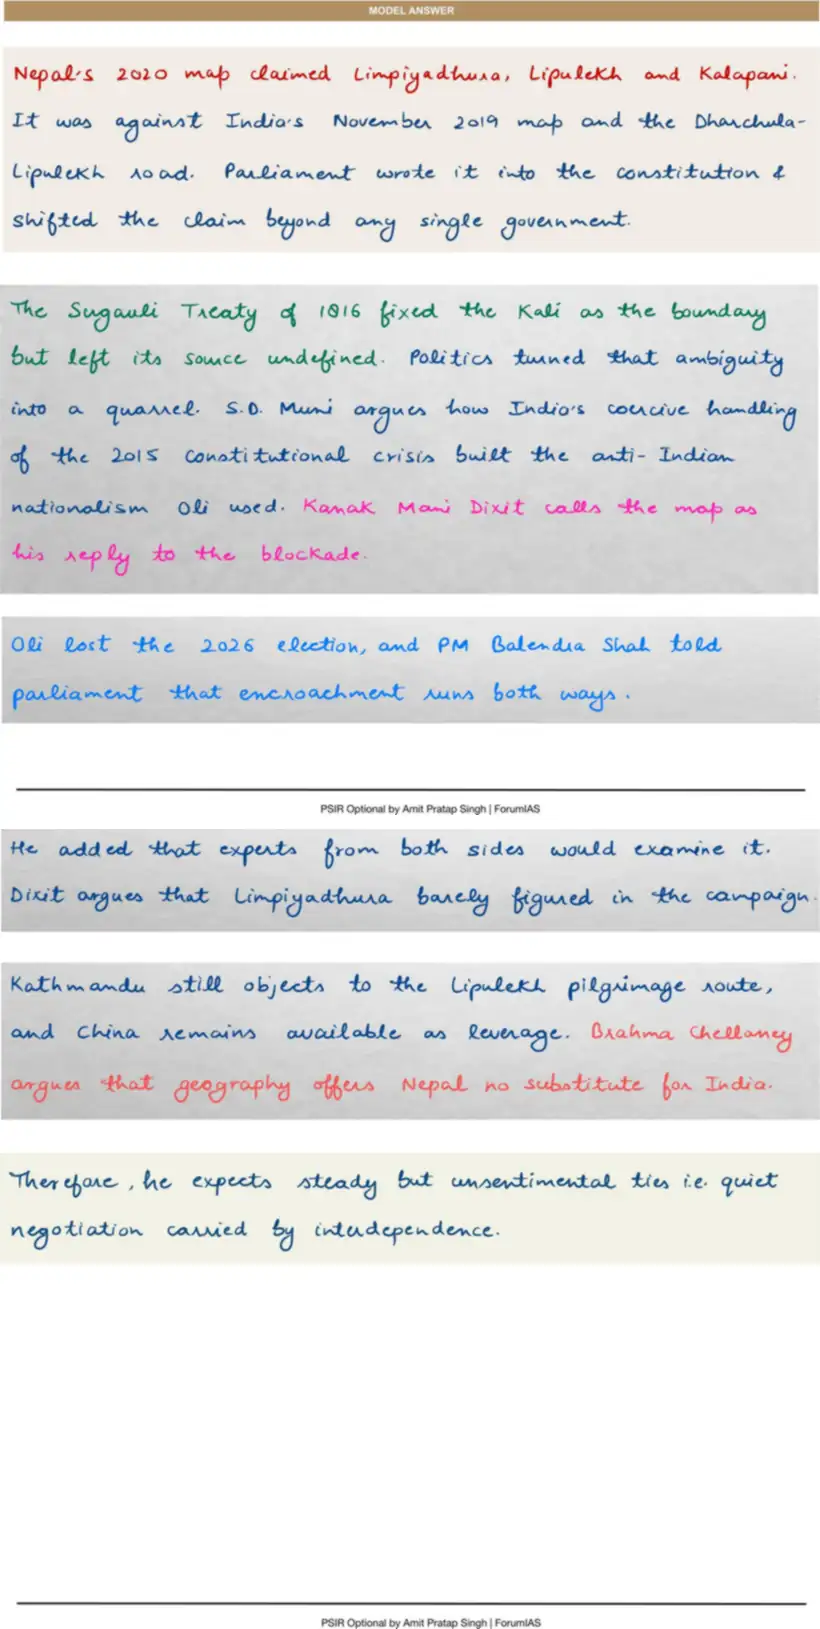 MODEL ANSWER
Nepal's 2020 map claimed Limpiyadhura, Lipulekh and Kalapani.
It was against India's November 2019 map and the Dharchula-
Lipulekh road. Parliament wrote it into the constitution &
shifted the claim beyond any single government.
The Sugauli Treaty of 1816 fixed the Kali as the boundary
but left its source undefined. Politics turned that ambiguity
into a quarrel. S.D. Muni argues how India's coercive handling
of the 2015 constitutional crisis built the anti-Indian
nationalism Oli used. Kanak Mani Dixit calls the map as
his reply to the blockade.
Oli lost the 2026 election, and PM Balendra Shah told
parliament that encroachment runs both ways.
PSIR Optional by Amit Pratap Singh | ForumIAS
He added that experts from both sides would examine it.
Dixit argues that Limpiyadhura barely figured in the campaign.
Kathmandu still objects to the Lipulekh pilgrimage route,
and China remains available as leverage. Brahma Chellaney
argues that geography offers Nepal no substitute for India.
Therefore, he expects steady but unsentimental ties i.e. quiet
negotiation carried by interdependence.
PSIR Optional by Amit Pratap Singh | ForumIAS